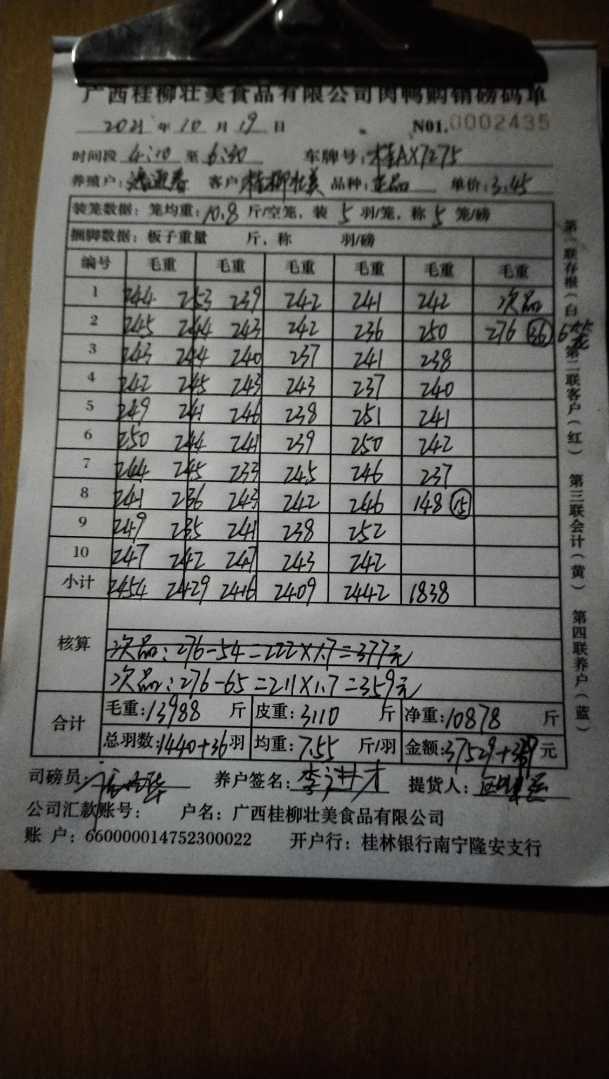 广西桂柳壮美食品有限公司肉鸭购销磅码单
2021 年 10 月 19 日 N01.0002435
时间段 4:10 至 6:30 车牌号：桂AX7275
养殖户： 客户 桂柳壮美 品种：正品 单价：3.45
装笼数据：笼均重：10.8 斤/空笼，装 5 羽/笼，称 5 笼/磅
捆脚数据：板子重量 斤，称 羽/磅
编号 毛重 毛重 毛重 毛重 毛重 毛重
1 244 253 239 242 241 242 次品
2 245 244 243 242 236 250 276 36 6
3 243 244 240 237 241 238
4 242 245 243 243 237 240
5 249 241 246 238 251 241
6 250 244 241 239 250 242
7 244 245 233 245 246 237
8 241 236 243 242 246 148 15
9 249 235 241 238 252
10 247 242 247 243 242
小计 2454 2429 2416 2409 2442 1838
核算
次品：276-54=222×1.7=377元
次品：276-65=211×1.7=359元
合计 毛重：13988 斤 皮重：3110 斤 净重：10878 斤
总羽数：1440+36羽 均重：7.55 斤/羽 金额：37529+359元
司磅员： 养户签名： 提货人：
公司汇款账号： 户名：广西桂柳壮美食品有限公司
账 户：660000014752300022 开户行：桂林银行南宁隆安支行
第一联存根（白） 第二联客户（红） 第三联会计（黄） 第四联养户（蓝）